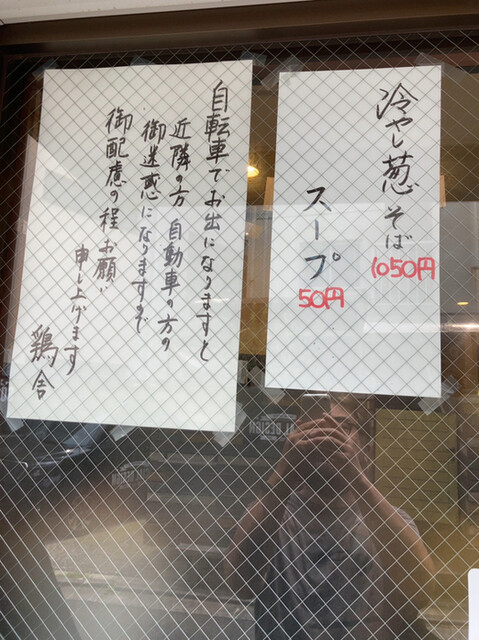 冷やし葱そば
1050円
スープ
50円
自転車でお出になりますと
近隣の方 自動車の方の
御迷惑になりますので
御配慮の程お願い
申し上げます
鶏舎
DESIGN